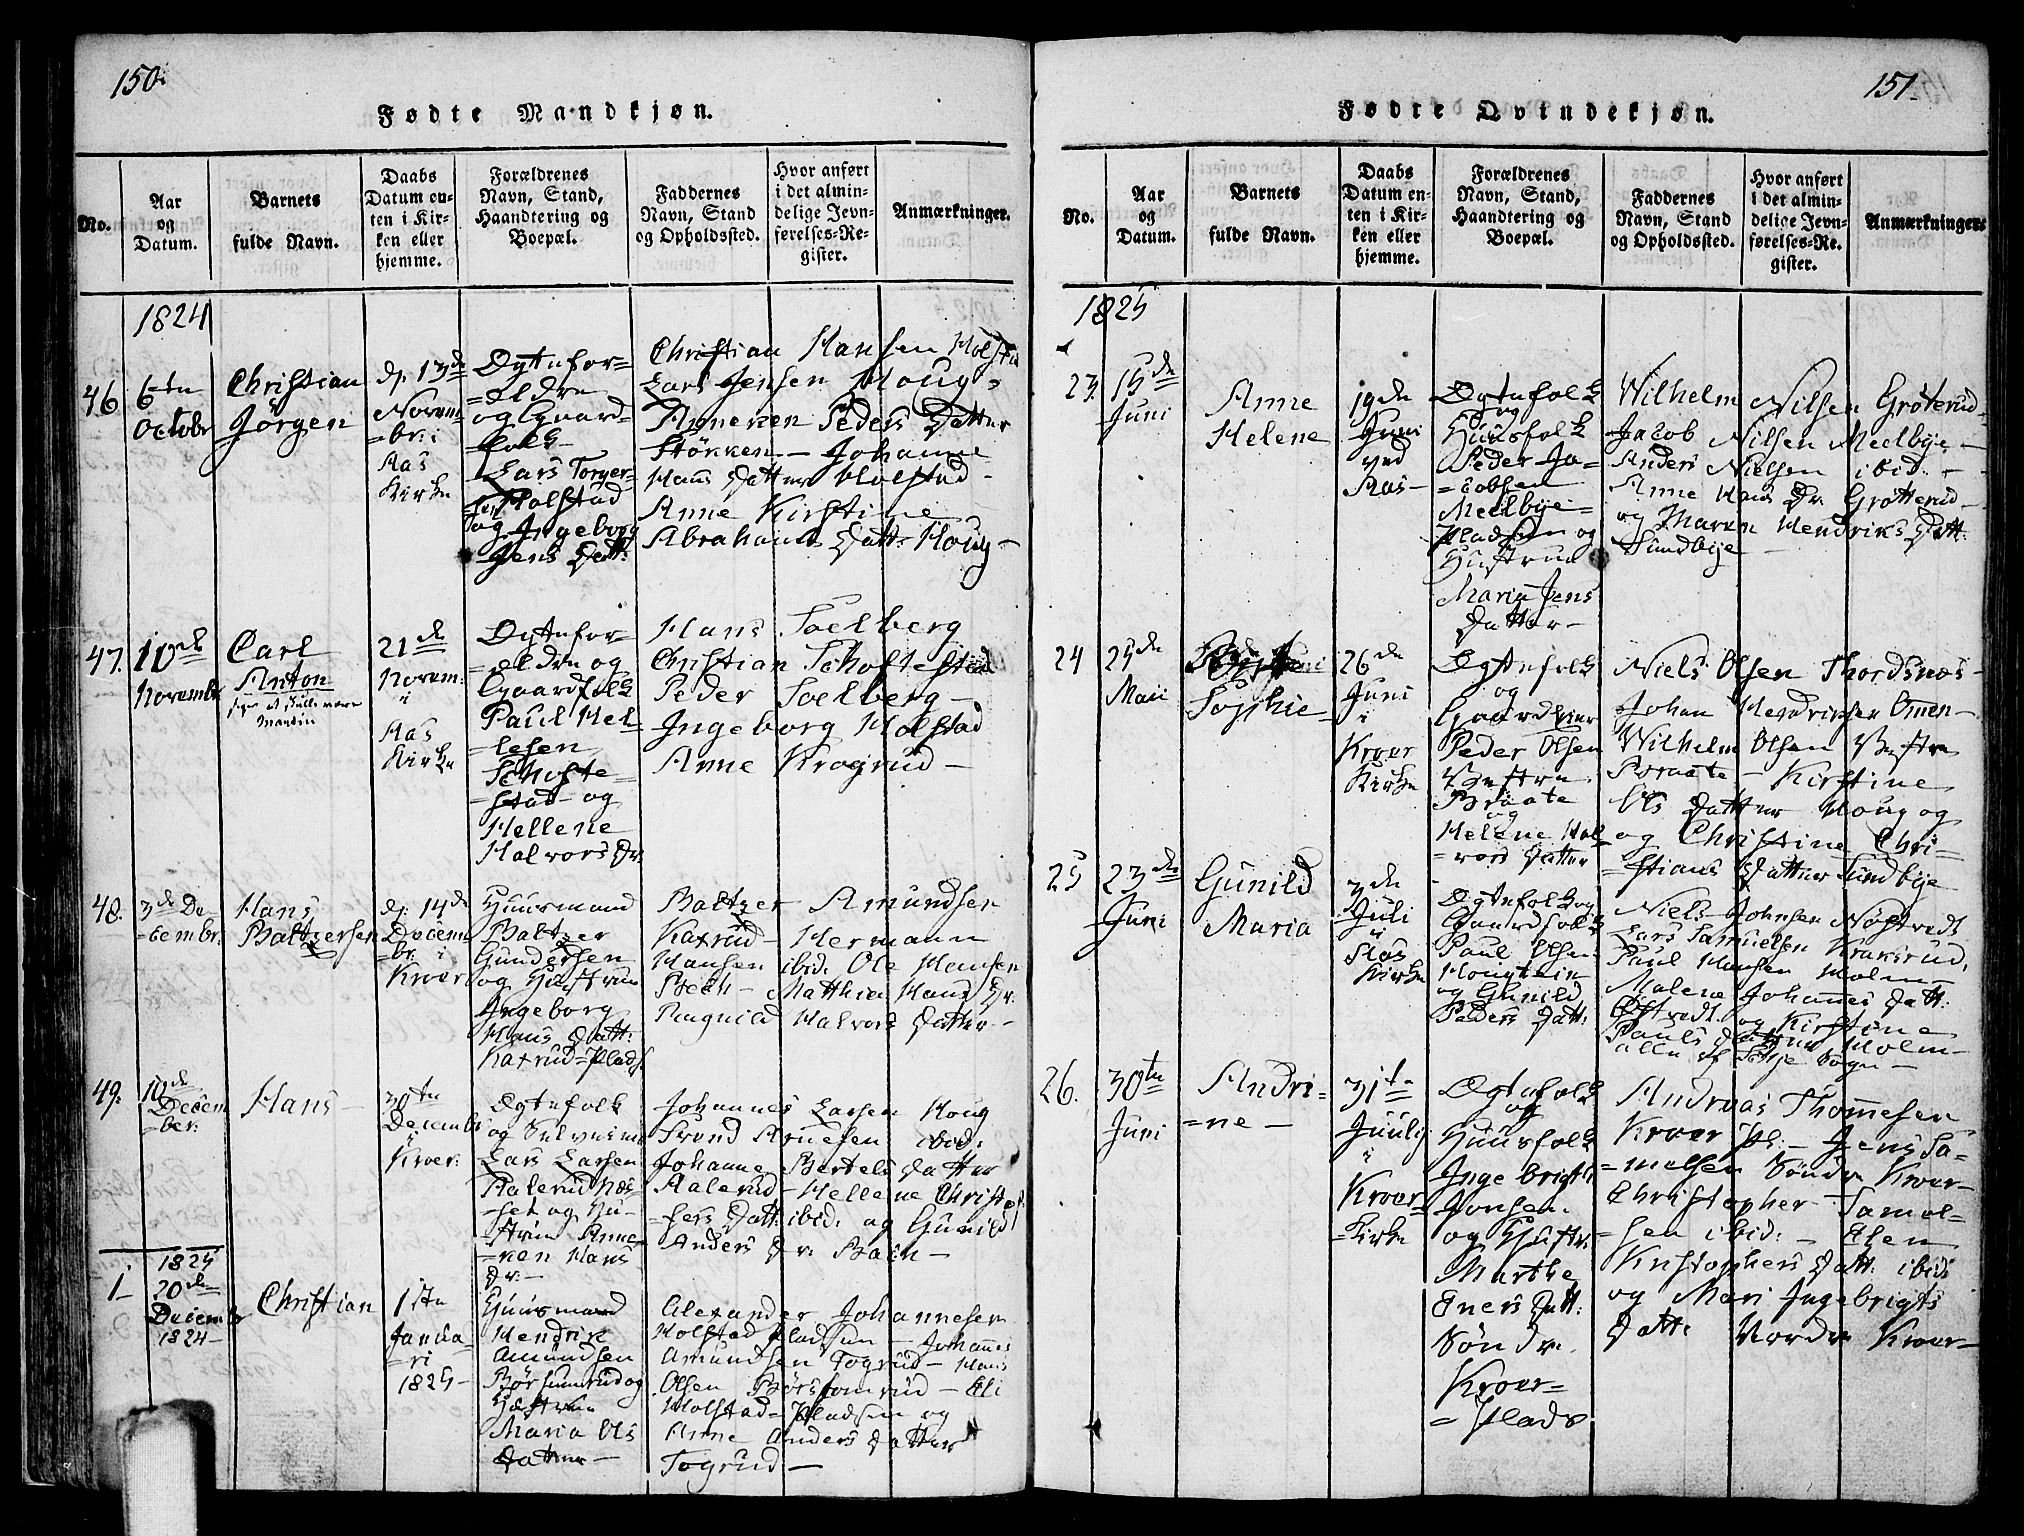 150.
Fødte Mandkjøn.
No.
Aar
og
Datum.
Barnets
fulde Navn.
Daabs
Datum en-
ten i Kir-
ken eller
hjemme.
Forældrenes
Navn, Stand,
Haandtering og
Boepæl.
Faddernes
Navn, Stand
og Opholdssted.
Hvor anført
i det almin-
delige Jevn-
førelses-Re-
gister.
Anmærkninger.
1824
46
6te
Octobr
Christian
Jörgen
d. 13de
Novem-
=br: i
Aas
Kirke
Ægtefor=
=ældre
og Gaard-
folk
Lars Torger-
sen Holstad
og Ingeborg
Jens Datt:
Christian Hansen Holstad
Lars Jensen Houg-
Anneken Peders Datter
Stökken - Johanne
Hans Datter Holstad-
Anne Kirstine
Abrahams Datt: Houg-
47.
10de
Novembr
Carl
Anton
21de
Novem:
i
Aas
Kirke
Ægtefor=
=ældre og
Gaardfolk
Paul Hel-
=lesen
Skofte-
=stad og
Hellene
Halvors Dr.
Hans Soelberg
Christian Skoftestad
Peder Soelberg-
Ingeborg Holstad
Anne Krogrud-
48.
3de De-
=cembr.
Hans
Baltzersen
d: 14de
Decem
=br: i
Kroer
Huusmand
Baltzer
Gundersen
og Hustrue
Ingeborg
Hans Datt:
Kaxrud=Plads
Baltzer Amundsen
Kaxrud- Hermann
Hansen ibid: Ole Hansen
Steen- Matthia Hans Dr:
Ragnild Halvors Datter-
49.
10de
Decem
=ber:
Hans-
30te
Decembr
i
Kroer:
Ægtefolk
og Selveiere
Lars Larsen
Aalerud Næs-
set og Hu-
strue Anne-
=ken Hans
Dr:-
Johannes Larsen Houg
Trond Arnesen ibid:
Johanne Bertels Datter
Aalerud- Hellene Christof-
=fers Datt: ibid: og Gunild
Anders Dr:
1.
1825
20de
Decembr
1824-
Christian
1ste
Janua-
=ri
1825-
Huusmand
Hendrik
Amundsen
Börsumrud og
Hustrue
Maria Ols
Datter-
Alexander Johannesen
Holstad Pladsen- Johannes
Amundsen Togrud- Hans
Olsen Börsomrud- Eli
Holstad- Pladsen og
Anne Anders Datter
Togrud-
151.
Fødte Qvindekjøn.
No.
Aar
og
Datum.
Barnets
fulde Navn.
Daabs
Datum en-
ten i Kir-
ken eller
hjemme.
Forældrenes
Navn, Stand,
Haandtering og
Boepæl.
Faddernes
Navn, Stand
og Opholdssted.
Hvor anført
i det almin-
delige Jevn-
førelses-Re-
gister.
Anmærkninger.
1825
23.
15de
Juni
Anne
Helene
19de
Juni
ved
Aas-
Ægtefolk
og
Huusfolk
Peder Ja-
=cobsen
Mellbye=
Pladsen og
Hustrue
Maria Jens
Datter-
Wilhelm Nilsen Gröterud
Jacob Nilsen Mellbye-
Anders Nielsen ibid.-
Anne Hans Dr. Grötterud-
og Maren Hendriks Datt:
Sundbye-
24
25de
Maii
Sophie-
26de
Juni
i
Kroer
Kirke
Ægtefolk
og
Gaardbruger
Peder Olsen
Vestre
Braate
og
Helene Hal-
=vors Datter
Niels Olsen Thordsnæs-
Johan Hendriksen Omen-
Wilhelm Olsen Vestre
Braate- Kirstine
Ols Datter Houg og
og Christine Chri-
=stians Datter Sundbye
25
23de
Juni
Gunild
Maria
3de
Juli
i
Aas
Kirke
Ægtefolk og
Gaardfolk
Paul Olsen
Hougtein
og Gunild
Peders Datt:
Niels Johnsen Nöstvedt
Lars Samuelsen Kraksrud,
Paul Hansen Holm
Malene Johannes Datt:
Östvedt. og Kirstine
Pauls Datter Holm-
alle af Sogn-
26.
30te
Juni
Andri-
=ne-
31te
Juulij
i
Kroer
=Kirke
Ægtefolk
og
Huusfolk
Ingebrigth
Jonsen.
og Hustr:
Marthe
Eners Datt:
Söndr.
Kroer=
=Plads
Andreas Thommesen
Kroer Pl:- Jens Sa-
=melsen Söndr Kroer-
Christopher Samel-
=sen ibid:- Elen
Kristophers Datt: ibid:
og Mari Ingebrigts
Datt: Nordre Kroer-